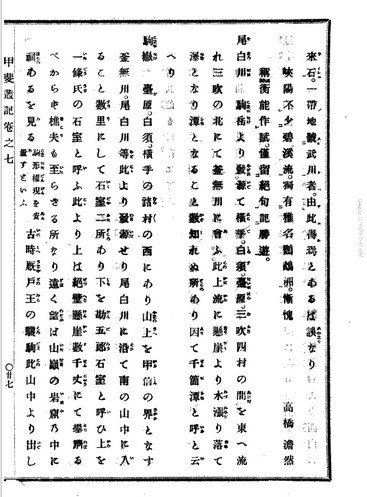 來石。一帶地號武川者。由此得焉とあるは誤なり
峽陽不少碧溪流。獨有雅名鸚鵡洲。慚愧 高橋濳然
禰衡能作賦。僅留絕句記勝遊。
尾白川 駒岳より發源て橫手。白須。臺原。三吹四村の間を東へ流
れ三吹の北にて釜無川に會ふ此上流に懸崖より水漲り落て
瀑となり潭となること數知れぬ所あり因て千箇潭と呼と云
へり
駒嶽 臺原。白須。橫手の諸村の西にあり山上を甲信の界となす
釜無川。尾白川等此より發源せり尾白川に沿て南の山中に入
ること數里にして石室二所あり下を勘五郎石室と呼ひ上を
一條氏の石室と呼ふ此より上は絕壁懸崖數千丈にて攀躋る
べからき樵夫も至らさる所なり遠く望は山巓の岩窟乃中に
祠あるを見る 駒形權現を安置すといふ 古時厩戶王の驪駒此山中より出し
甲斐叢記卷之七
〇廿七